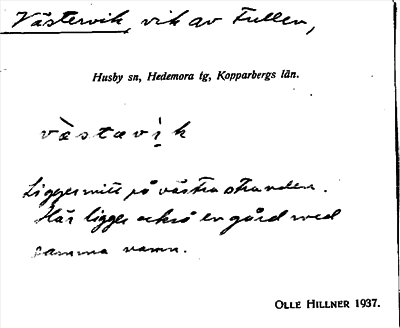 Västervik, vik av Fullen,
Husby sn, Hedemora tg, Kopparbergs län.
västavik
Ligger mitt på västra stranden.
Här ligger också en gård med
samma namn.
OLLE HILLNER 1937.